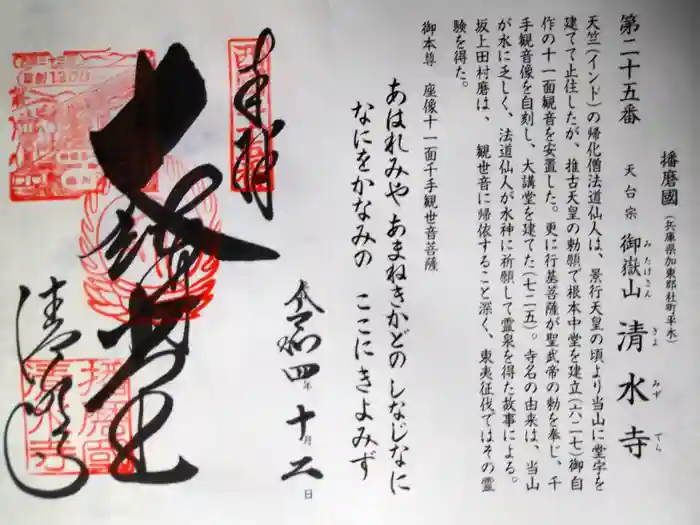 第二十五番
播磨國(兵庫県加東郡社町平木)
天台宗 御嶽山 清水寺
みたけさん きよ みず でら
天竺(インド)の帰化僧法道仙人は、景行天皇の頃より当山に堂宇を
建てて止住したが、推古天皇の勅願で根本中堂を建立(六二七)御自
作の十一面観音を安置した。更に行基菩薩が聖武帝の勅を奉じ、千
手観音像を自刻し、大講堂を建てた(七二五)。寺名の由来は、当山
が水に乏しく、法道仙人が水神に祈願して霊泉を得た故事による。
坂上田村磨は、観世音に帰依すること深く、東夷征伐ではその霊
験を得た。
御本尊 座像十一面千手観世音菩薩
あはれみや あまねきかどの しなじなに
なにをかなみの ここにきよみず
奉拝
令和四年十月二日
大悲殿
清水寺
1300
播磨国
清水寺